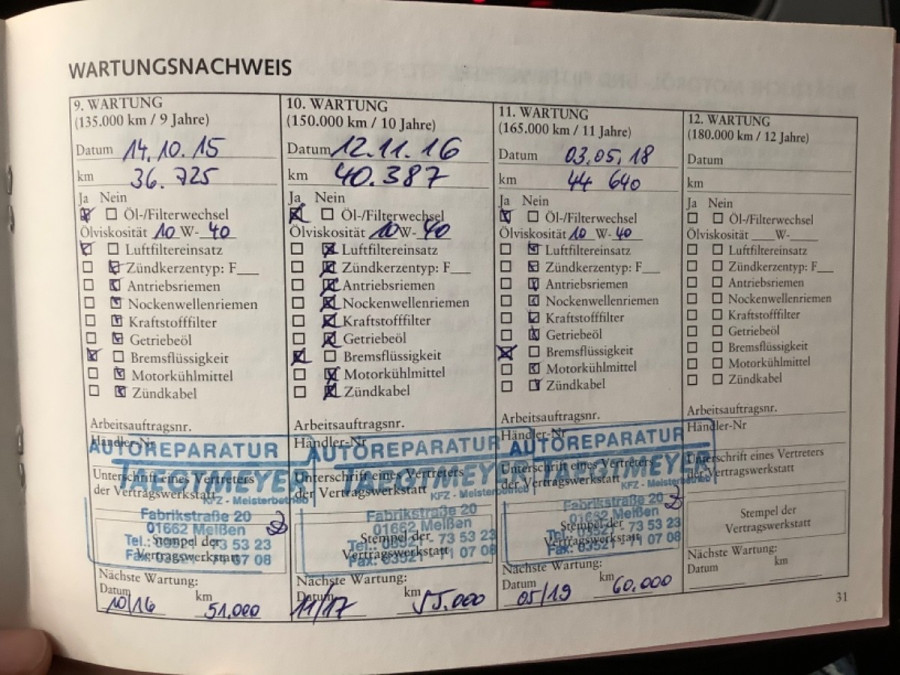 WARTUNGSNACHWEIS
9. WARTUNG
(135.000 km / 9 Jahre)
Datum 14.10.15
km 36.725
Ja Nein
Öl-/Filterwechsel
Ölviskosität 10 W- 40
Luftfiltereinsatz
Zündkerzentyp: F___
Antriebsriemen
Nockenwellenriemen
Kraftstofffilter
Getriebeöl
Bremsflüssigkeit
Motorkühlmittel
Zündkabel
Arbeitsauftragsnr.
Händler-Nr
AUTOREPARATUR
TAEGTMEYER
KFZ - Meisterbetrieb
Unterschrift eines Vertreters
der Vertragswerkstatt
Fabrikstraße 20
01662 Meißen
Stempel der
Tel.: 73 53 23
Vertragswerkstatt
Fax: 03521 - 71 07 08
Nächste Wartung:
Datum km
10/16 51.000
10. WARTUNG
(150.000 km / 10 Jahre)
Datum 12.11.16
km 40.387
Ja Nein
Öl-/Filterwechsel
Ölviskosität 10 W- 40
Luftfiltereinsatz
Zündkerzentyp: F___
Antriebsriemen
Nockenwellenriemen
Kraftstofffilter
Getriebeöl
Bremsflüssigkeit
Motorkühlmittel
Zündkabel
Arbeitsauftragsnr.
Händler-Nr
AUTOREPARATUR
TAEGTMEYER
KFZ - Meisterbetrieb
Unterschrift eines Vertreters
der Vertragswerkstatt
Fabrikstraße 20
01662 Meißen
Stempel der
Tel.: 73 53 23
Vertragswerkstatt
Fax: 03521 - 71 07 08
Nächste Wartung:
Datum km
11/17 55.000
11. WARTUNG
(165.000 km / 11 Jahre)
Datum 03.05.18
km 44 640
Ja Nein
Öl-/Filterwechsel
Ölviskosität 10 W- 40
Luftfiltereinsatz
Zündkerzentyp: F___
Antriebsriemen
Nockenwellenriemen
Kraftstofffilter
Getriebeöl
Bremsflüssigkeit
Motorkühlmittel
Zündkabel
Arbeitsauftragsnr.
Händler-Nr
AUTOREPARATUR
TAEGTMEYER
KFZ - Meisterbetrieb
Unterschrift eines Vertreters
der Vertragswerkstatt
Fabrikstraße 20
01662 Meißen
Stempel der
Tel.: 73 53 23
Vertragswerkstatt
Fax: 03521 - 71 07 08
Nächste Wartung:
Datum km
05/19 60.000
12. WARTUNG
(180.000 km / 12 Jahre)
Datum
km
Ja Nein
Öl-/Filterwechsel
Ölviskosität ___W-____
Luftfiltereinsatz
Zündkerzentyp: F___
Antriebsriemen
Nockenwellenriemen
Kraftstofffilter
Getriebeöl
Bremsflüssigkeit
Motorkühlmittel
Zündkabel
Arbeitsauftragsnr.
Händler-Nr
Unterschrift eines Vertreters
der Vertragswerkstatt
Stempel der
Vertragswerkstatt
Nächste Wartung:
Datum km
31